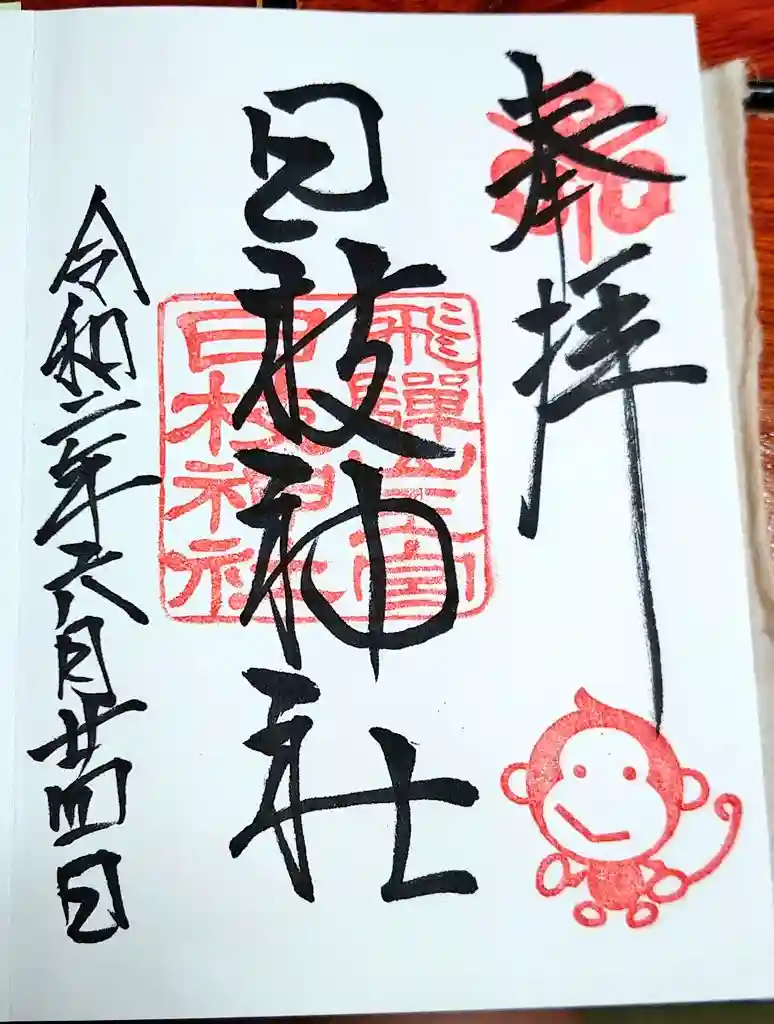 奉拝
飛騨山王宮
日枝神社
日枝神社
令和二年六月廿四日